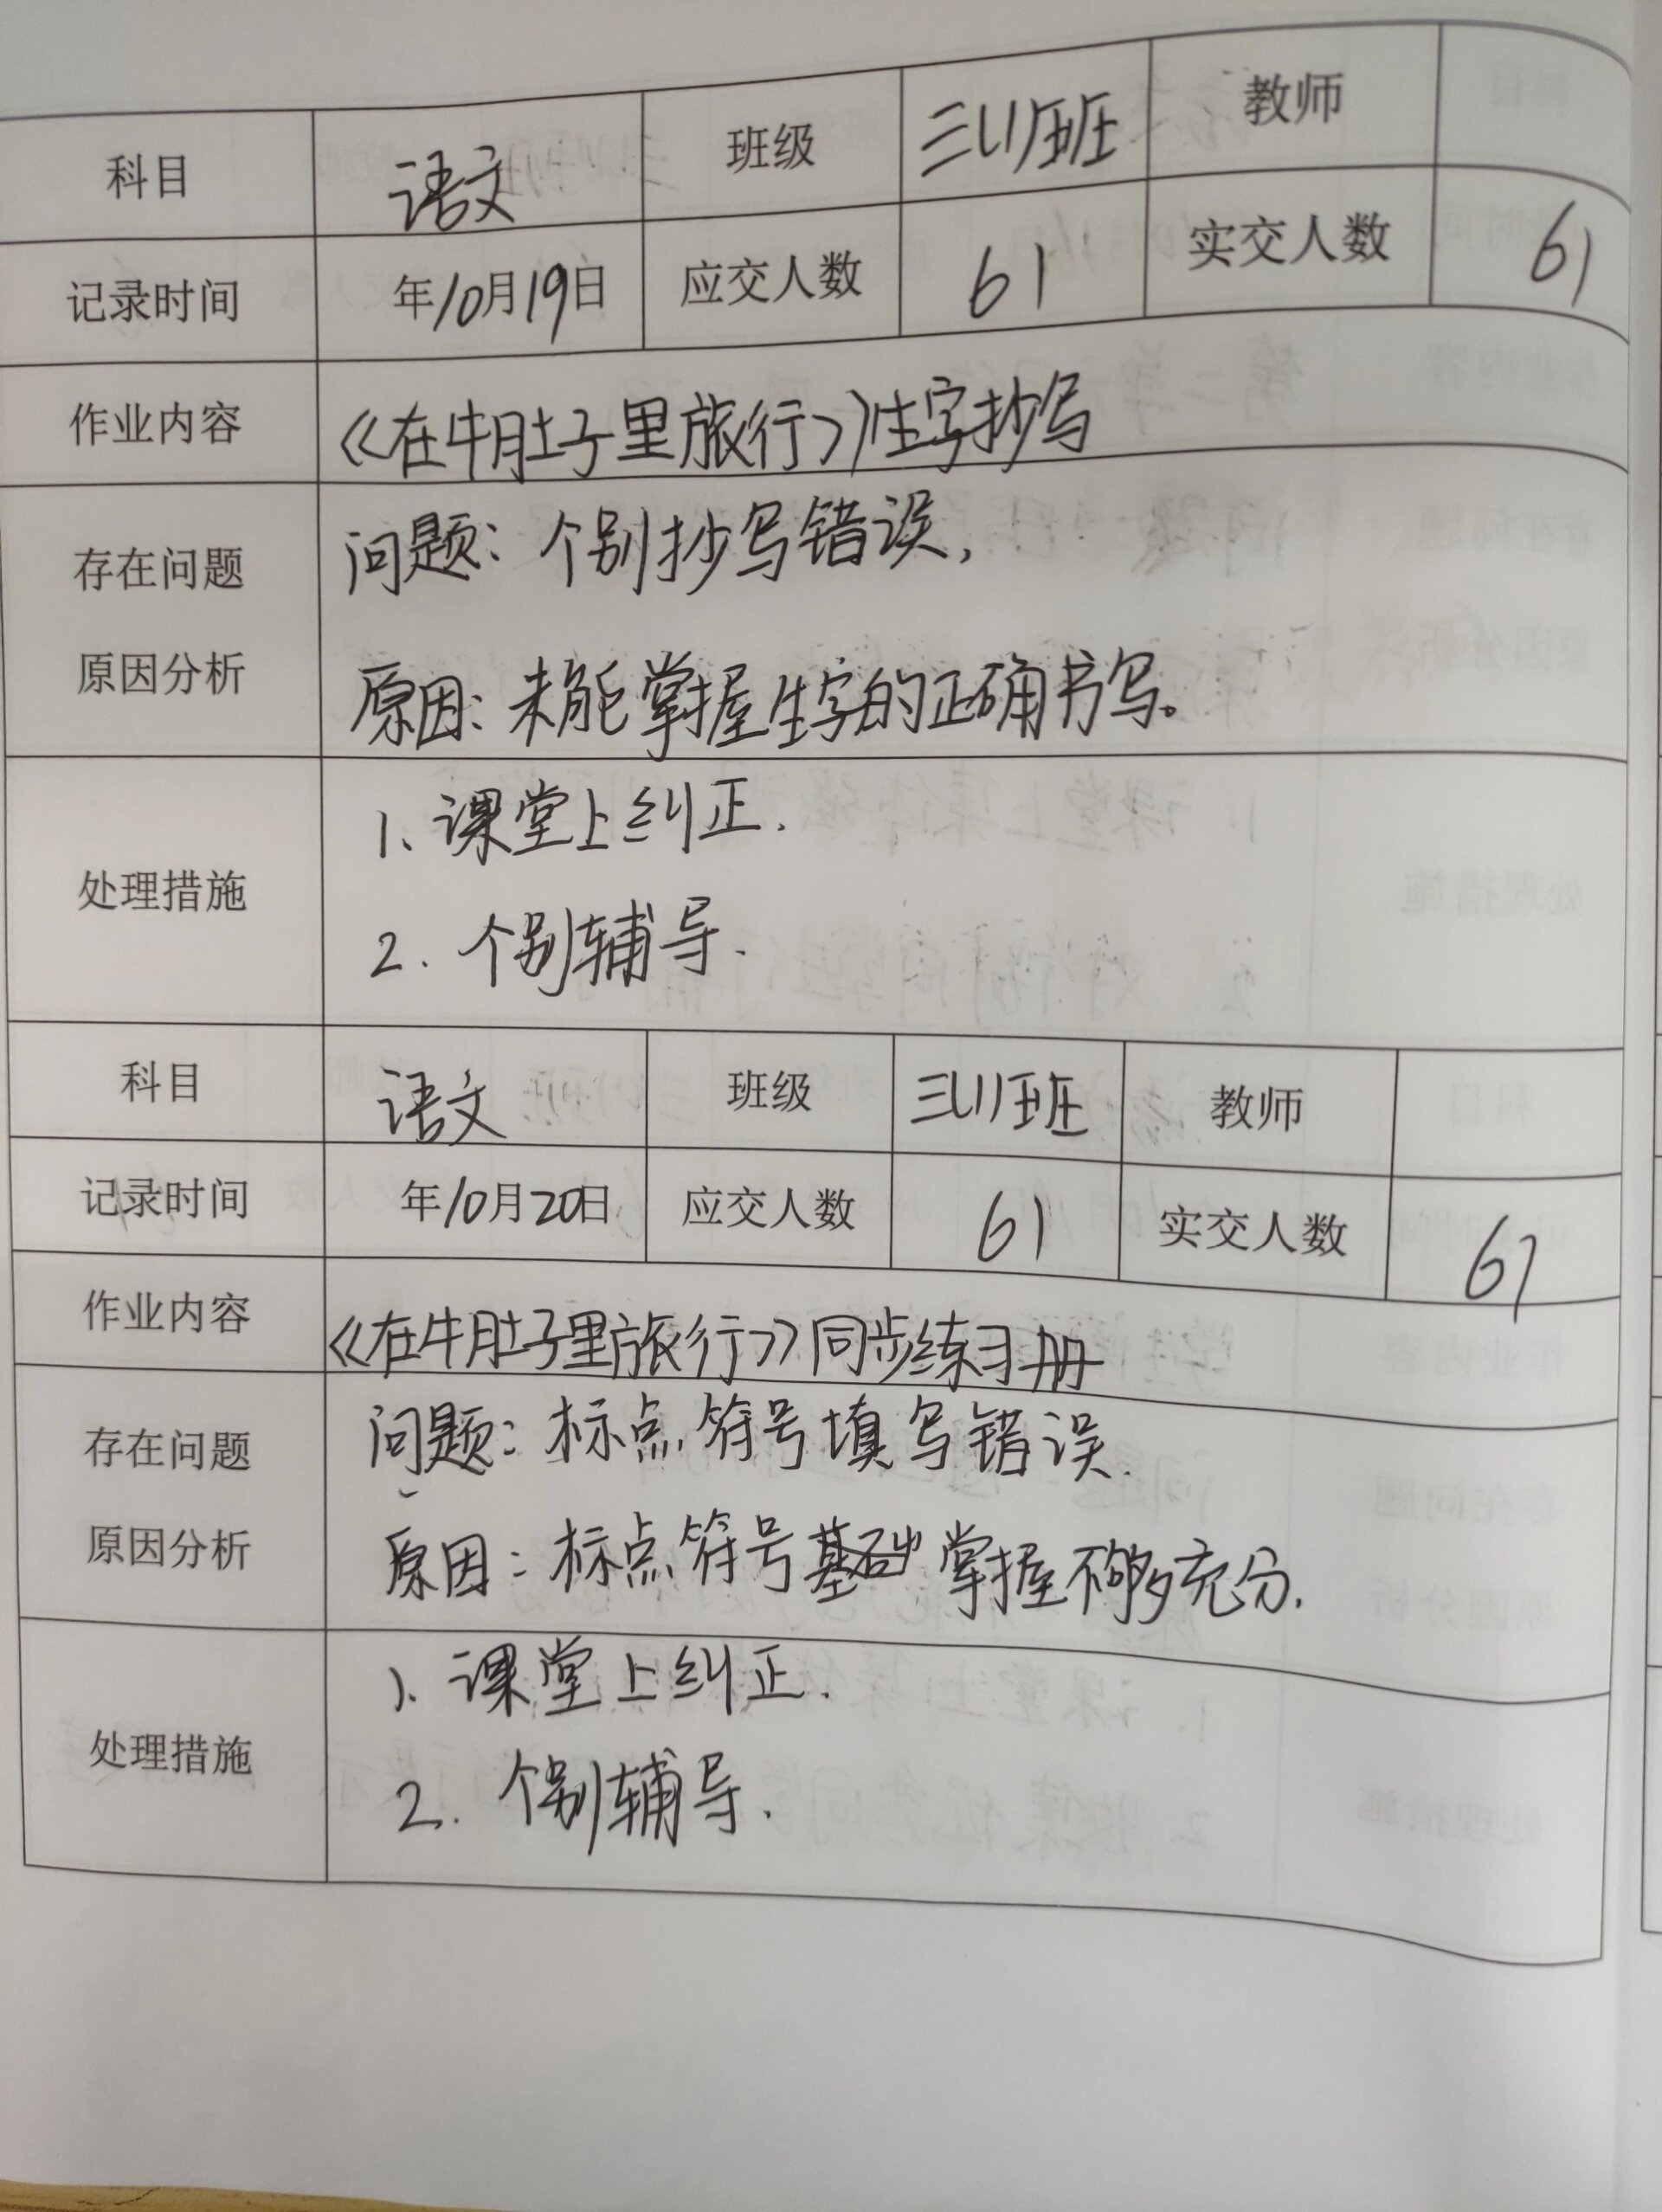 科目 语文 班级 三(1)班 教师
记录时间 年10月19日 应交人数 61 实交人数 61
作业内容 《在牛肚子里旅行》生字抄写
存在问题 问题：个别抄写错误,
原因分析 原因：未能掌握生字的正确书写。
处理措施 1、课堂上纠正.
2. 个别辅导.
科目 语文 班级 三(1)班 教师
记录时间 年10月20日 应交人数 61 实交人数 61
作业内容 《在牛肚子里旅行》同步练习册
存在问题 问题：标点符号填写错误.
原因分析 原因：标点符号基础掌握不够充分.
处理措施 1. 课堂上纠正.
2. 个别辅导.